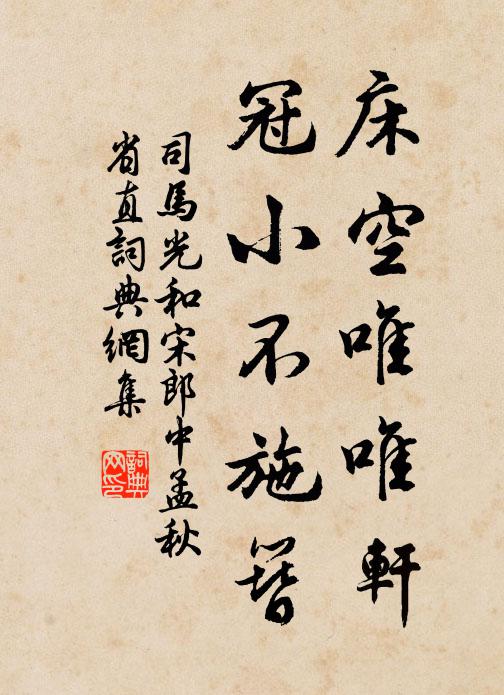 床空唯唯軒
冠小不施簪
司馬光和宋郎中孟秋
省直詞典網集
詞典
网印